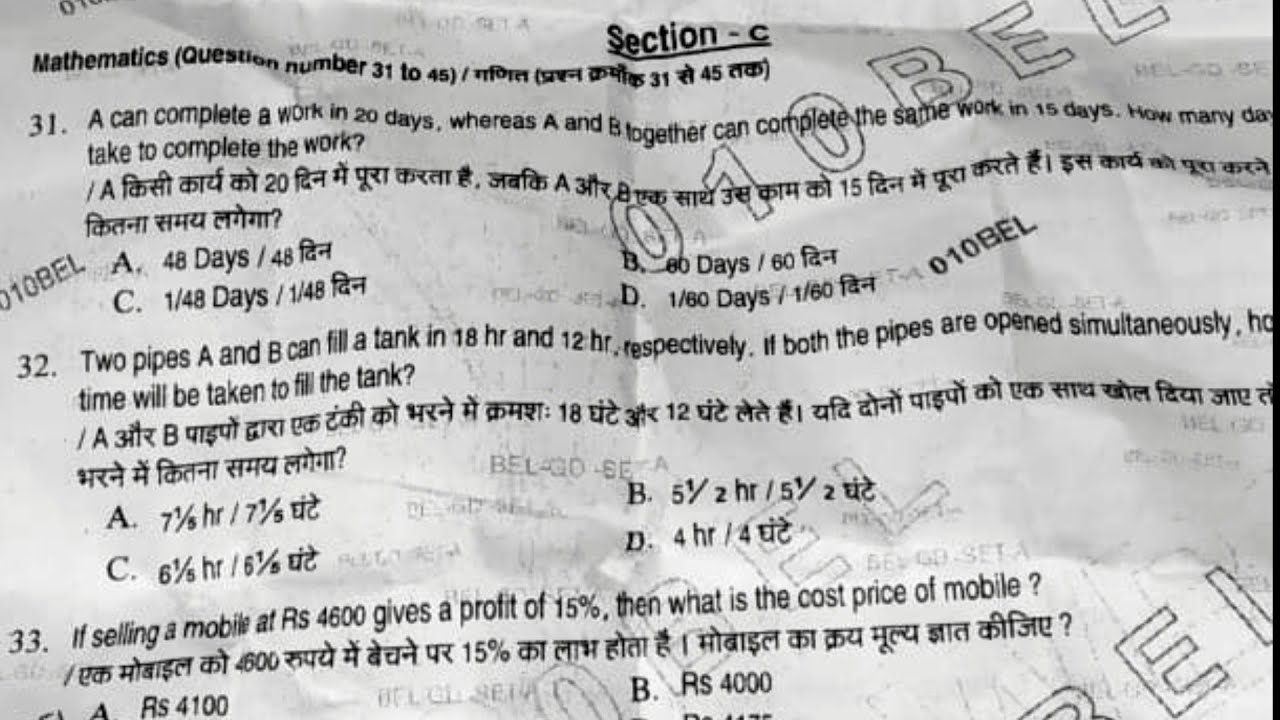 Section - C
Mathematics (Question number 31 to 45) / गणित (प्रश्न क्रमाँक 31 से 45 तक)
31. A can complete a work in 20 days, whereas A and B together can complete the same work in 15 days. How many day
take to complete the work?
/ A किसी कार्य को 20 दिन में पूरा करता है, जबकि A और B एक साथ उस काम को 15 दिन में पूरा करते हैं। इस कार्य को पूरा करने
कितना समय लगेगा?
010BEL
A. 48 Days / 48 दिन
B. 60 Days / 60 दिन
010BEL
C. 1/48 Days / 1/48 दिन
D. 1/60 Days / 1/60 दिन
32. Two pipes A and B can fill a tank in 18 hr and 12 hr, respectively. If both the pipes are opened simultaneously, ho
time will be taken to fill the tank?
/ A और B पाइपों द्वारा एक टंकी को भरने में क्रमशः 18 घंटे और 12 घंटे लेते हैं। यदि दोनों पाइपों को एक साथ खोल दिया जाए तो
भरने में कितना समय लगेगा?
BEL-GD -SET-A
A. 7⅕ hr / 7⅕ घंटे
B. 5 1/2 hr / 5 1/2 घंटे
C. 6⅕ hr / 6⅕ घंटे
D. 4 hr / 4 घंटे
33. If selling a mobile at Rs 4600 gives a profit of 15%, then what is the cost price of mobile ?
/ एक मोबाइल को 4600 रुपये में बेचने पर 15% का लाभ होता है । मोबाइल का क्रय मूल्य ज्ञात कीजिए ?
A. Rs 4100
B. Rs 4000
010BEL